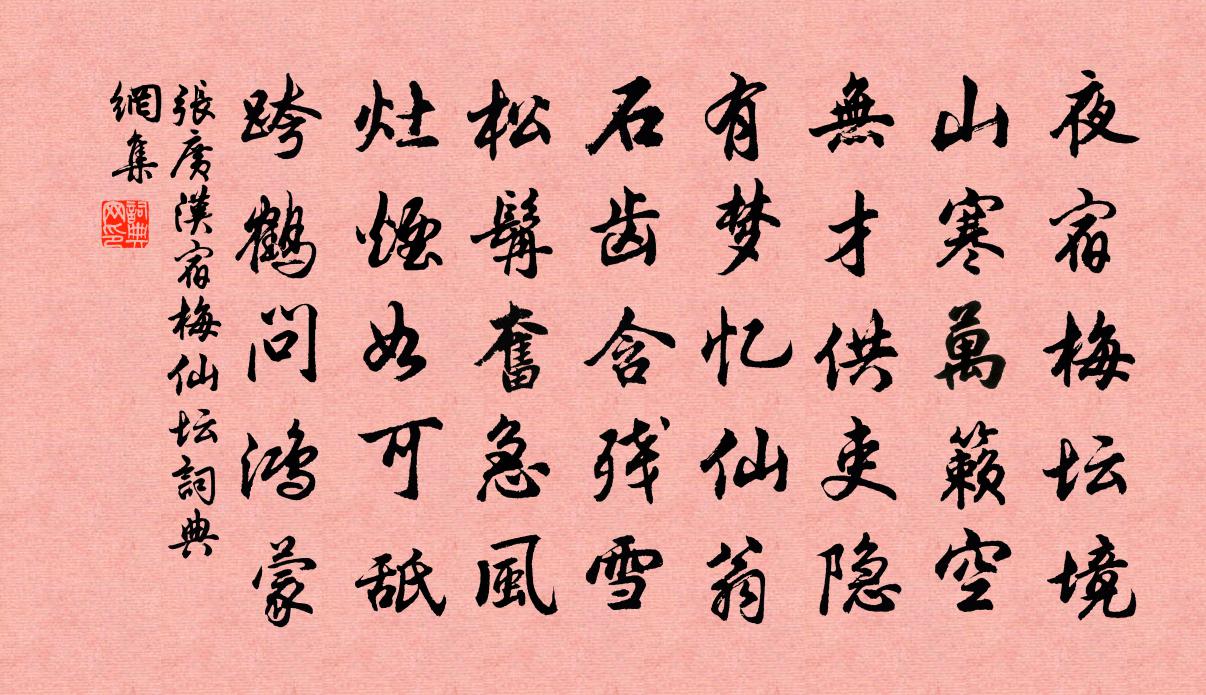 夜宿梅坛境
山寒萬籟空
無才供吏隐
有梦忆仙翁
石齿含残雪
松髯奮急風
灶煙如可舐
跨鶴問鴻蒙
張廣漢宿梅仙坛詞典
網集
詞典網印